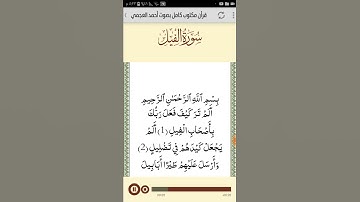 قرآن مكتوب كامل بصوت أحمد العجمي
سورة الفيل
بِسْمِ ٱللَّهِ ٱلرَّحْمَٰنِ ٱلرَّحِيمِ
أَلَمْ تَرَ كَيْفَ فَعَلَ رَبُّكَ
بِأَصْحَابِ الْفِيلِ (1) أَلَمْ
يَجْعَلْ كَيْدَهُمْ فِي تَضْلِيلٍ (2)
وَأَرْسَلَ عَلَيْهِمْ طَيْرًا أَبَابِيلَ